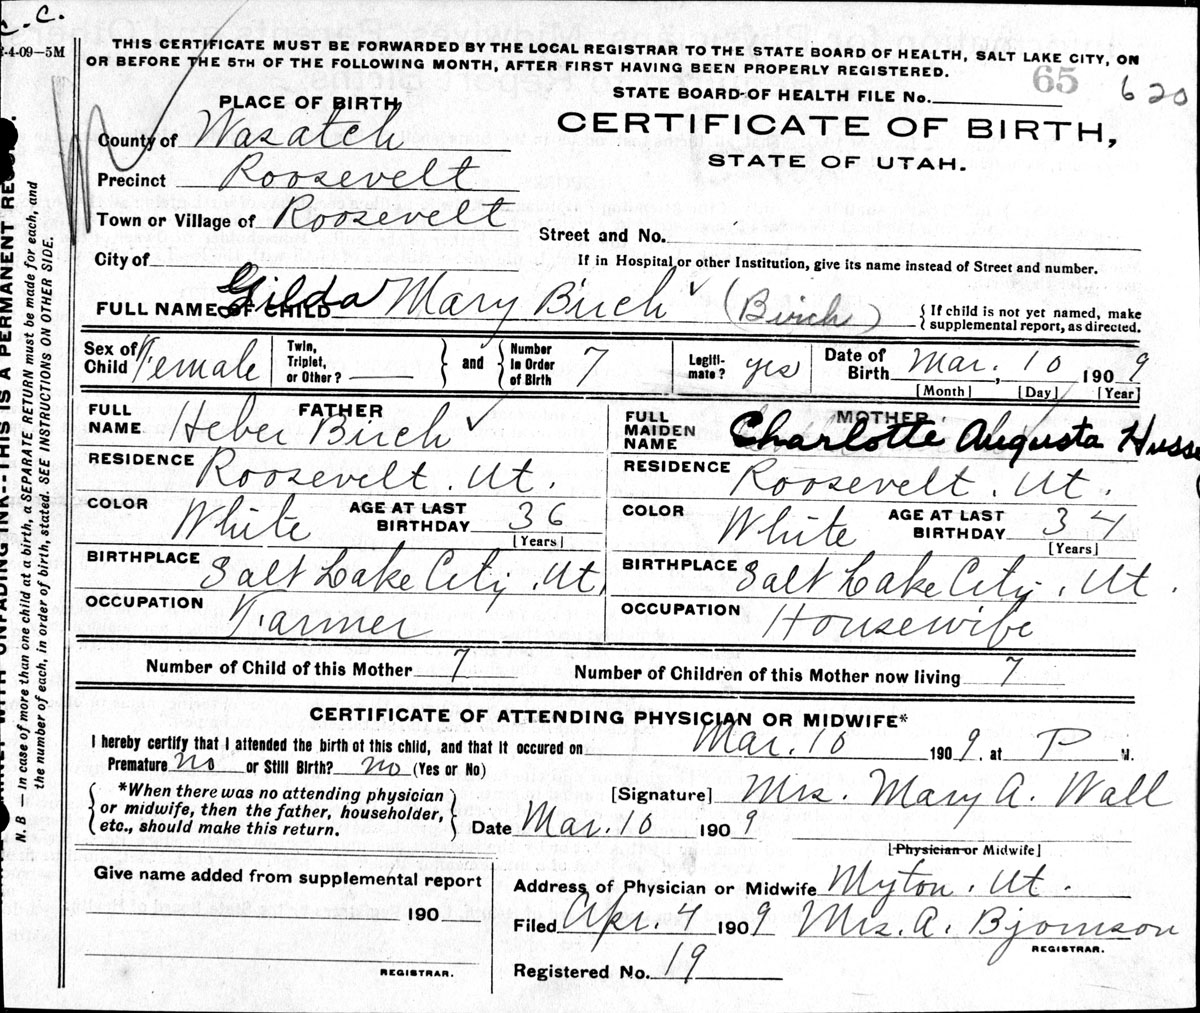 C. C.
-4-09—5M
THIS CERTIFICATE MUST BE FORWARDED BY THE LOCAL REGISTRAR TO THE STATE BOARD OF HEALTH, SALT LAKE CITY, ON
OR BEFORE THE 5TH OF THE FOLLOWING MONTH, AFTER FIRST HAVING BEEN PROPERLY REGISTERED.
65 620
STATE BOARD OF HEALTH FILE No.
PLACE OF BIRTH
CERTIFICATE OF BIRTH,
STATE OF UTAH.
County of Wasatch
Precinct Roosevelt
Town or Village of Roosevelt
Street and No.
City of
If in Hospital or other Institution, give its name instead of Street and number.
FULL NAME OF CHILD Gilda Mary Birch (Birch)
{ If child is not yet named, make
supplemental report, as directed.
Sex of Child Female
Twin, Triplet, or Other? —
and
Number in Order of Birth 7
Legiti- mate? yes
Date of Birth Mar. 10, 1909
[Month] [Day] [Year]
FATHER
FULL NAME Heber Birch
RESIDENCE Roosevelt. Ut.
COLOR White
AGE AT LAST BIRTHDAY 36
[Years]
BIRTHPLACE Salt Lake City, Ut.
OCCUPATION Farmer
MOTHER
FULL MAIDEN NAME Charlotte Augusta Husse
RESIDENCE Roosevelt. Ut.
COLOR White
AGE AT LAST BIRTHDAY 34
[Years]
BIRTHPLACE Salt Lake City, Ut.
OCCUPATION Housewife
Number of Child of this Mother 7
Number of Children of this Mother now living 7
CERTIFICATE OF ATTENDING PHYSICIAN OR MIDWIFE*
I hereby certify that I attended the birth of this child, and that it occured on Mar. 10 1909, at P M.
Premature no or Still Birth? no (Yes or No)
*When there was no attending physician
or midwife, then the father, householder,
etc., should make this return.
[Signature] Mrs. Mary A. Wall
Date Mar. 10 1909
[Physician or Midwife]
Give name added from supplemental report
190
REGISTRAR.
Address of Physician or Midwife Myton. Ut.
Filed Apr. 4 1909 Mrs. A. Bjornson
REGISTRAR.
Registered No. 19
UNFADING INK--THIS IS A PERMANENT
N. B — In case of more than one child at a birth, a SEPARATE RETURN must be made for each, and
the number of each, in order of birth, stated. SEE INSTRUCTIONS ON OTHER SIDE.